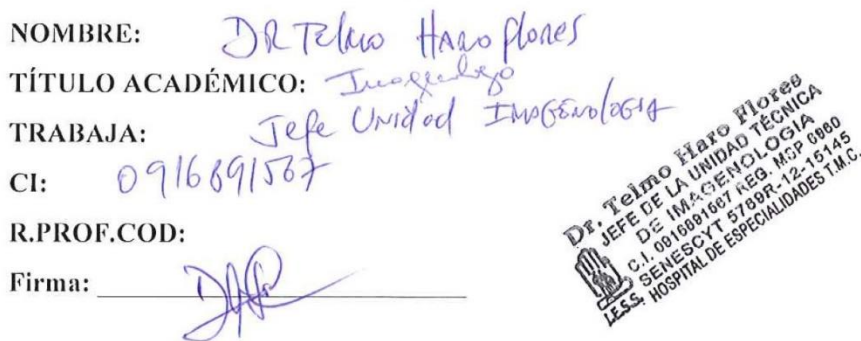 NOMBRE: DR Telmo Haro flores
TÍTULO ACADÉMICO: Imagenologo
TRABAJA: Jefe Unidad IMAGENOLOGIA
CI: 0916891567
R.PROF.COD:
Firma:
Dr. Telmo Haro Flores
JEFE DE LA UNIDAD TÉCNICA
DE IMAGENOLOGIA
C.I. 0916891667 REG. MSP 6960
SENESCYT 5789R-12-15145
I.E.S.S. HOSPITAL DE ESPECIALIDADES T.M.C.